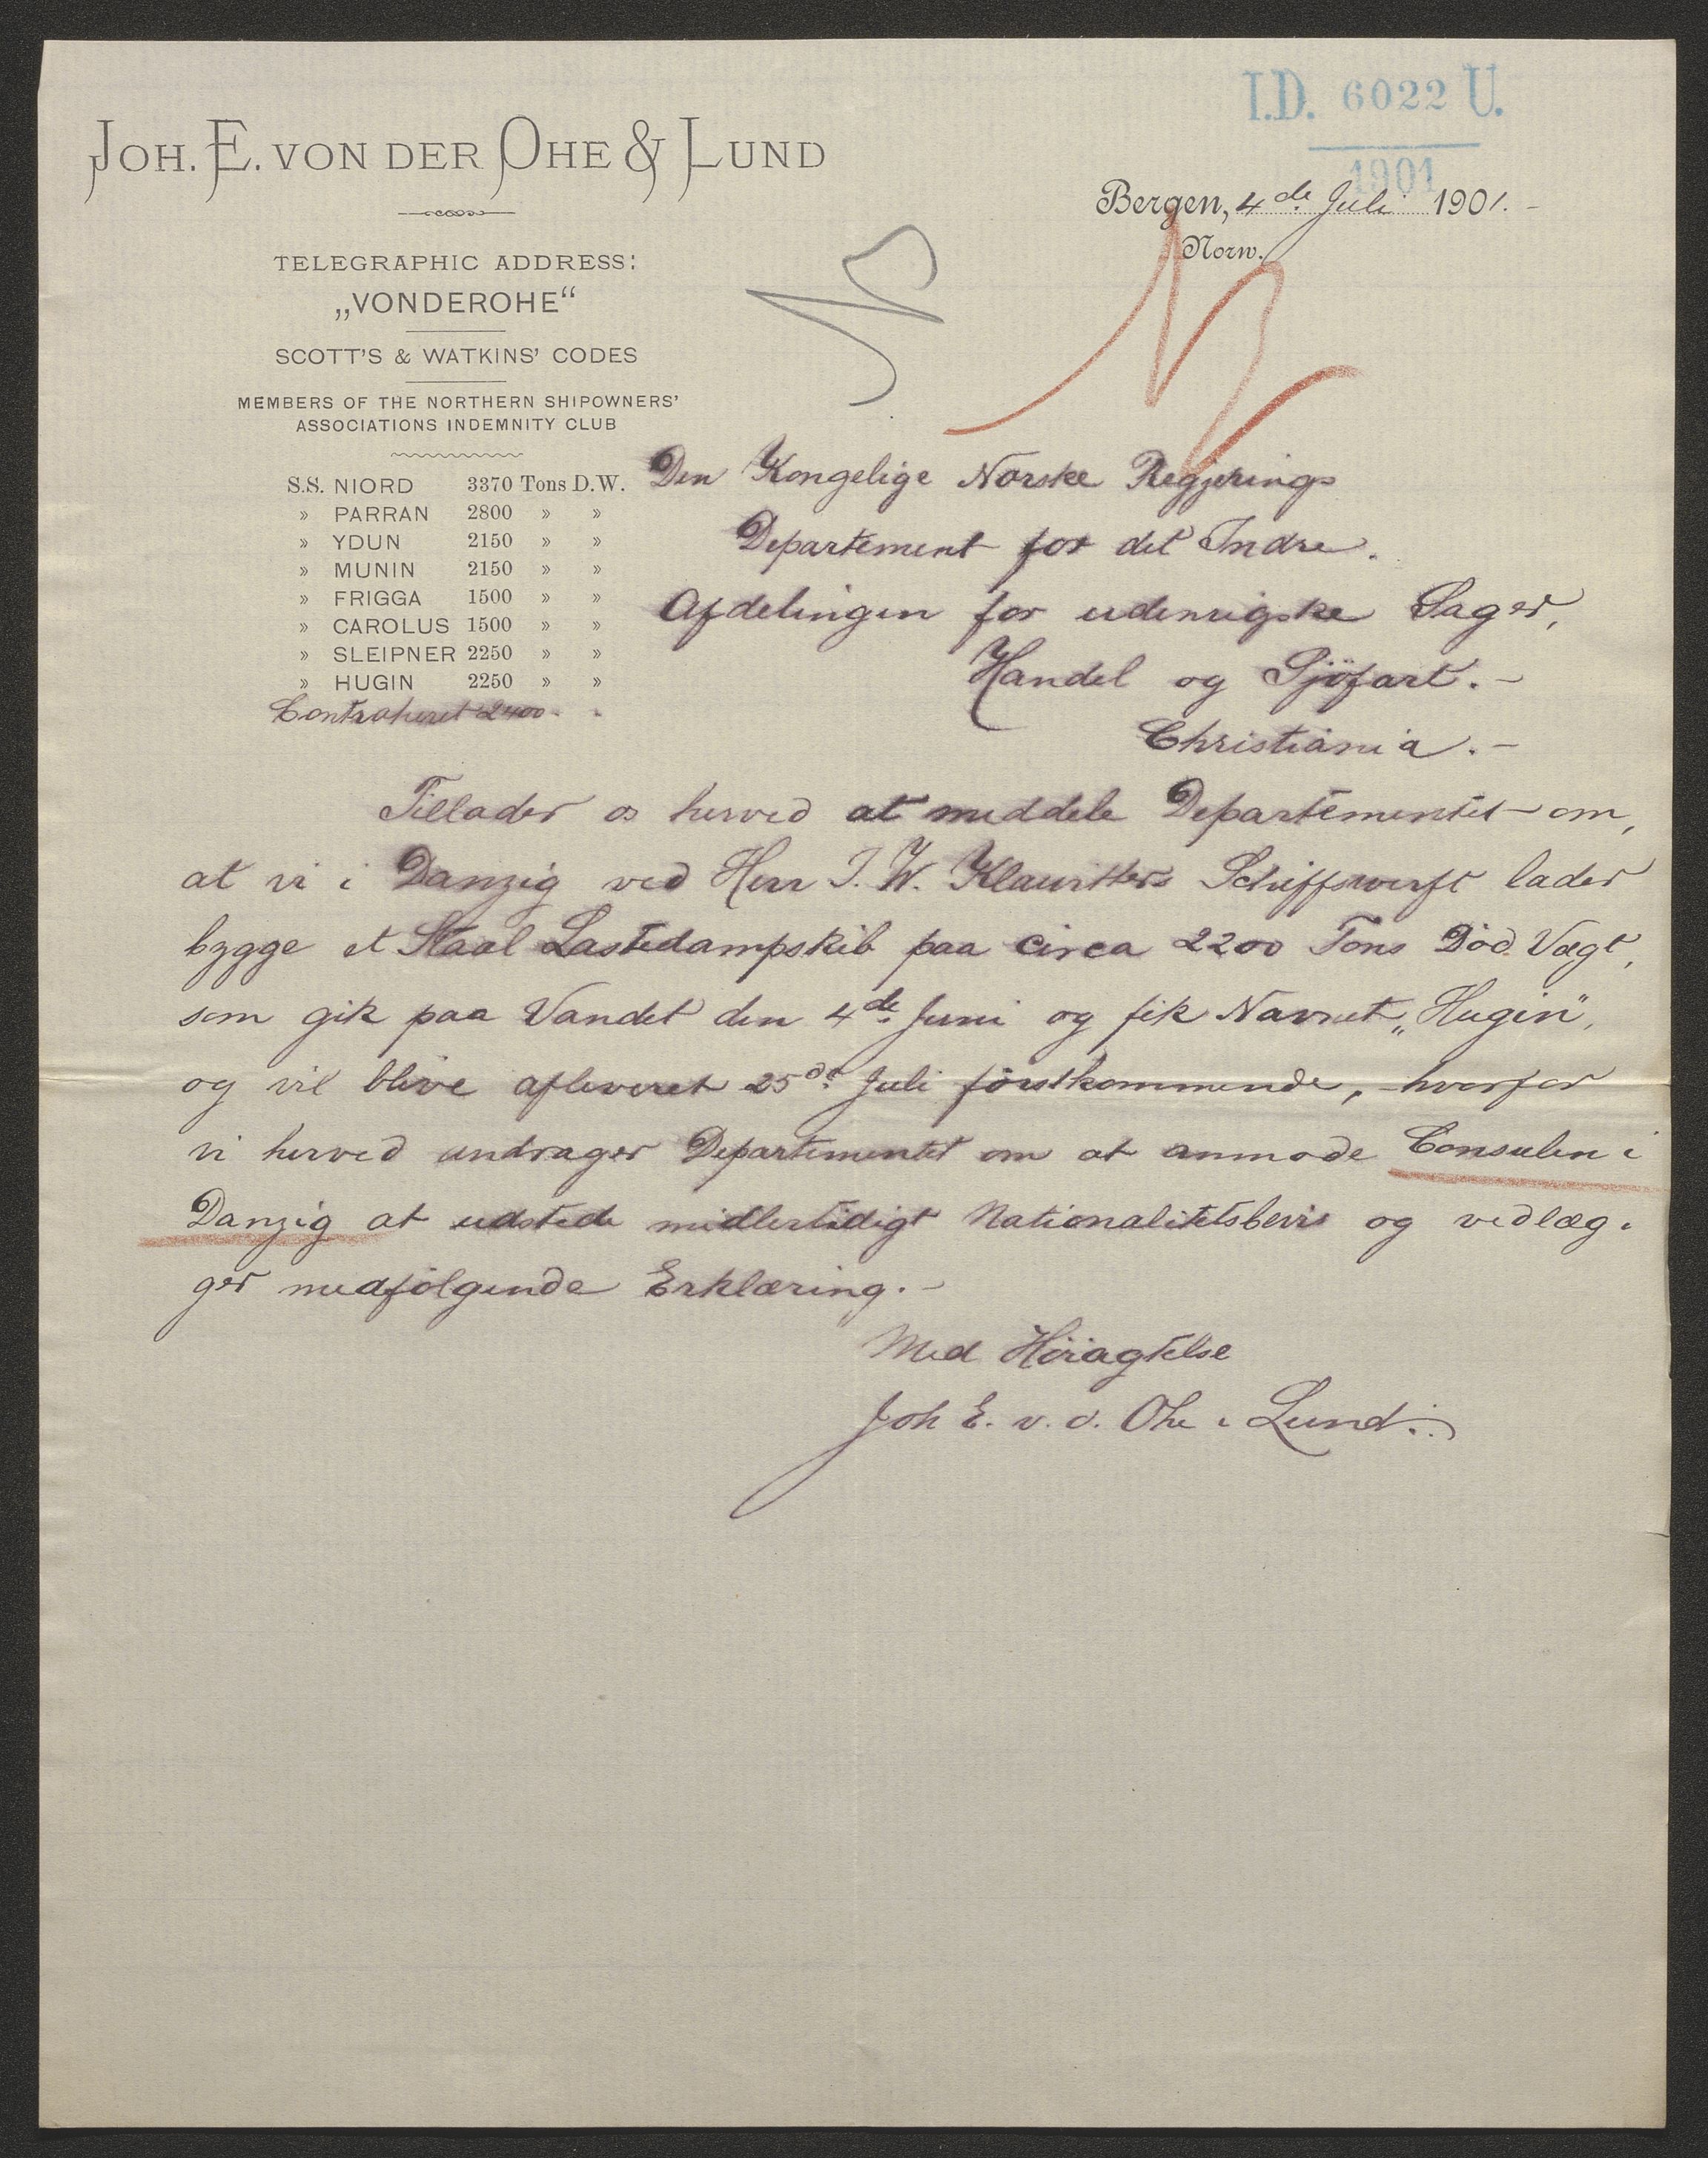 I.D. 6022 U.
1901
JOH. E. VON DER OHE & LUND
Bergen, 4de Juli 1901.-
Norw.
TELEGRAPHIC ADDRESS:
„VONDEROHE“
SCOTT'S & WATKINS' CODES
MEMBERS OF THE NORTHERN SHIPOWNERS'
ASSOCIATIONS INDEMNITY CLUB
S.S. NIORD 3370 Tons D.W.
» PARRAN 2800 » »
» YDUN 2150 » »
» MUNIN 2150 » »
» FRIGGA 1500 » »
» CAROLUS 1500 » »
» SLEIPNER 2250 » »
» HUGIN 2250 » »
Contraheret 2400 - -
Den Kongelige Norske Regjerings
Departement for det Indre.
Afdelingen for udenrigske Sager,
Handel og Sjöfart.-
Christiania.-
Tillader os herved at meddele Departementet om,
at vi i Danzig ved Herr J. W. Klawitters Schiffswerft lader
bygge et Staal Lastedampskib paa circa 2200 Tons Död Vægt,
som gik paa Vandet den 4de Juni og fik Navnet „Hugin",
og vil blive afleveret 25de Juli förstkommende, - hvorfor
vi herved andrager Departementet om at anmode Consulen i
Danzig at udstede midlertidigt Nationalitetsbevis og vedlæg-
ger medfølgende Erklæring.-
Med Höiagtelse
Joh E. v. d. Ohe & Lund.